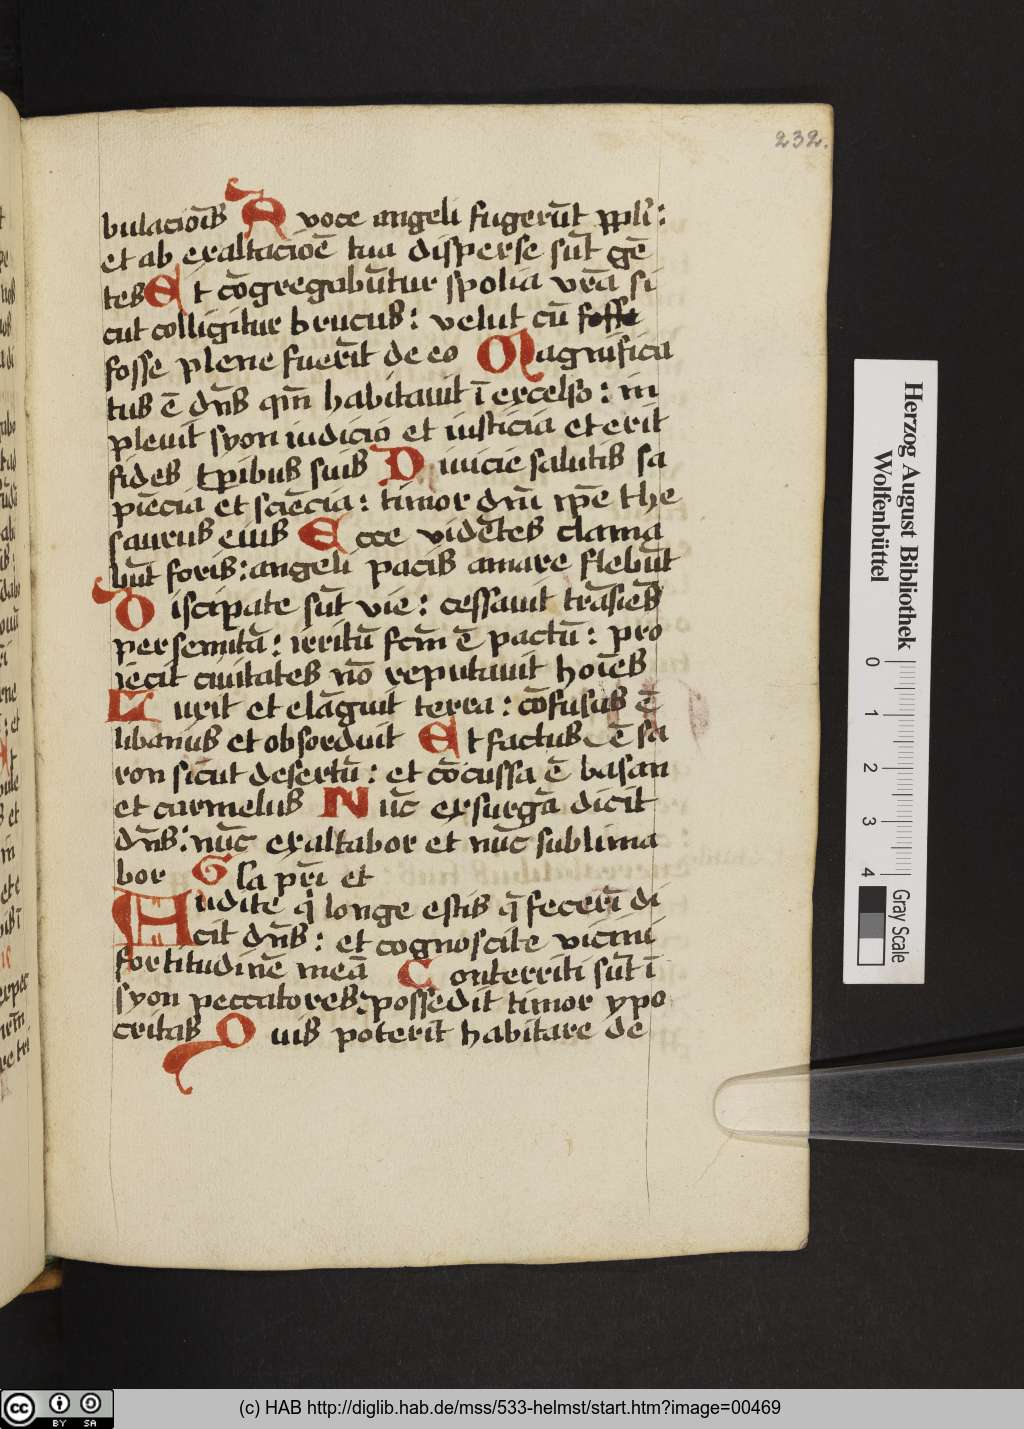 232.
bulacōis A voce angeli fugerūt ppli:
et ab exaltacioē tua disperse sūt gē
tes Et cōgregabūtur spolia vrā si
cut colligitur brucus: velut cū
fosse plene fuerīt de eo Magnifica
tus ē dn̄s qm̄ habitauit ī excelso: in
pleuit syon iudicio et iusticia et erit
fides tꝑibus suis Diuicie salutis sa
piēcia et sciēcia: timor dn̄i ip̄e the
saurus eius Ecce vidētes clama
būt foris: angeli pacis amare flebūt
Discipate sūt vie: cessauit trāsiēs
per semitā: irritū fcm̄ ē pactū: pro
iēcit ciuitates nō reputauit hoīes
Luxit et elāguit terra: cōfusus ē
libanus et obsorduit Et factus ē sa
ron sicut desertū: et cōcussa ē basan
et carmelus Nūc exsurgā dicit
dn̄s: nūc exaltabor et nūc sublima
bor Gla pr̄i et
Audite q̄ longe estis q̄ fecerī di
cit dn̄s: et cognoscite vicini
fortitudinē meā Conterriti sūt ī
syon peccatores: possedit timor ypo
critas Quis poterit habitare de
Herzog August Bibliothek
Wolfenbüttel
0
1
2
3
4
Gray Scale
BY SA
(c) HAB http://diglib.hab.de/mss/533-helmst/start.htm?image=00469